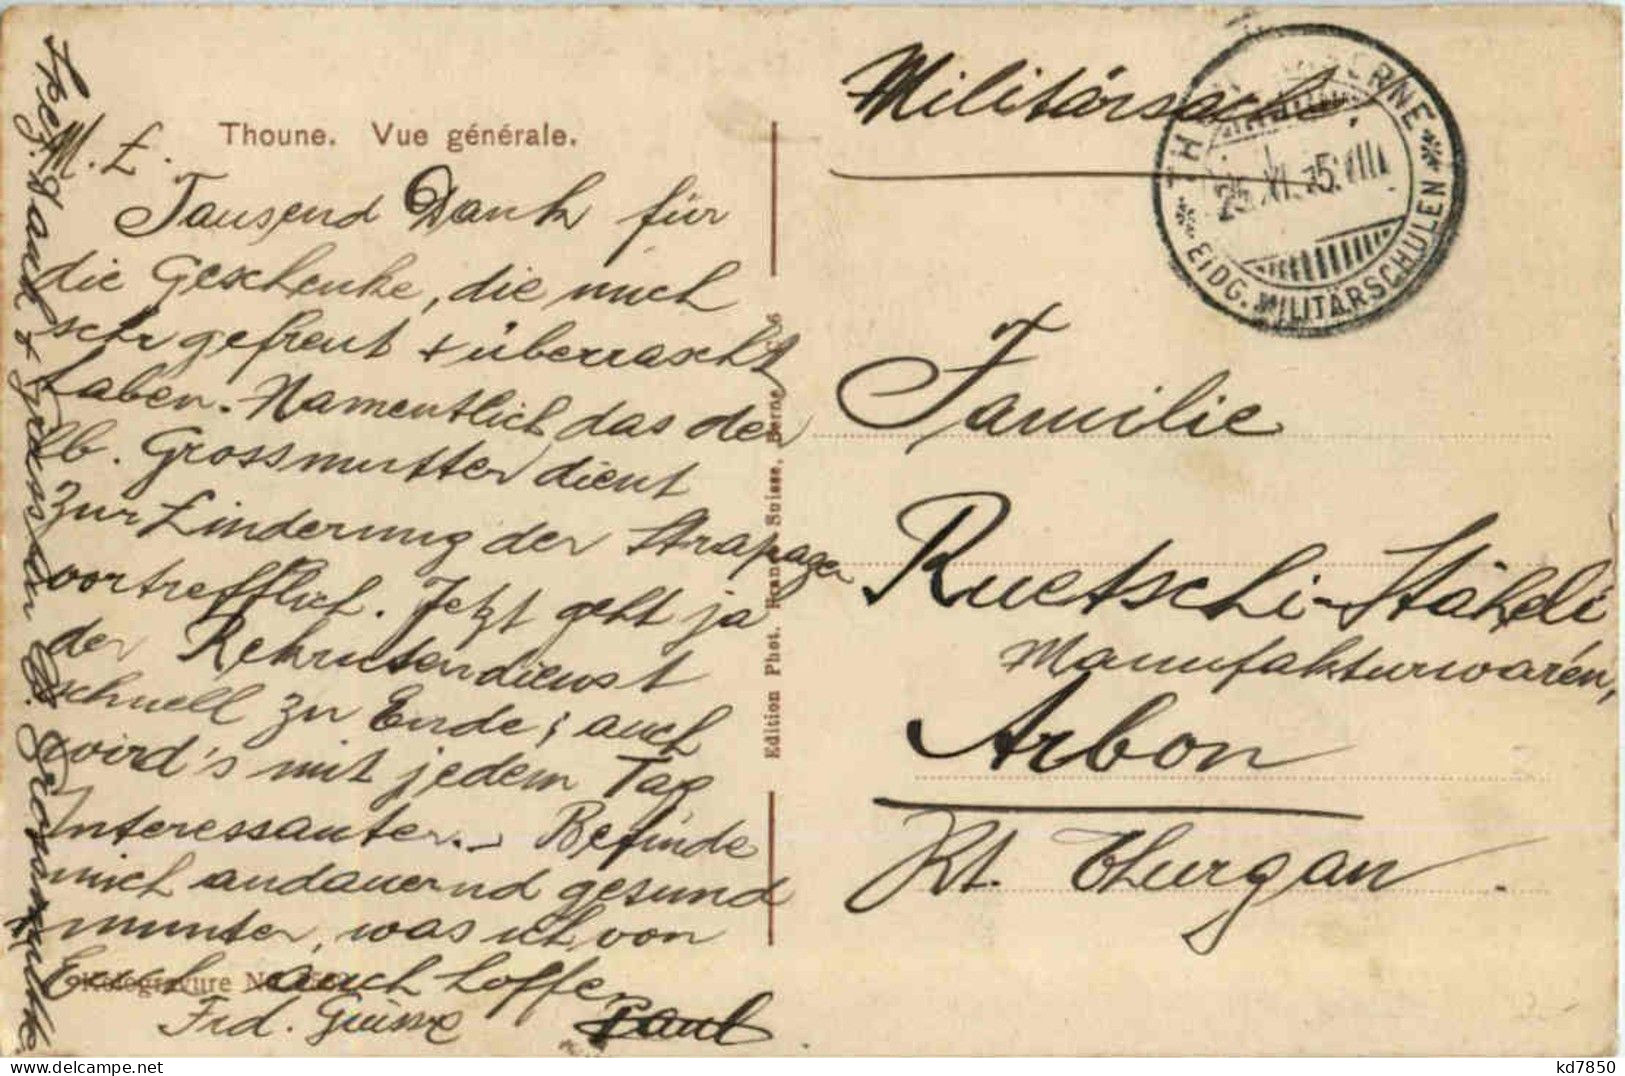 Thoune. Vue générale.
M. L.
Tausend Dank für
die Geschenke, die mich
sehr gefreut + überrascht
haben. Namentlich das der
lb. Grossmutter dient
zur Linderung der Strapazen
vortrefflich. Jetzt geht ja
der Rekrutendienst
schnell zu Ende; auch
wird's mit jedem Tag
Interessanter. – Befinde
mich andauernd gesund
+ munter, was ich von
Euch auch hoffe.
Frd. Grüsse Paul
Spez. Dank + Gruss an lb. Grossmutter
Photogravure No
Edition Phot. Franco-Suisse, Berne
Militärsache.
KASERNE
EIDG. MILITÄRSCHULEN
25. XI. 15. VIII
Familie
Ruetschi-Stäheli
Manufakturwaren,
Arbon
Kt. Thurgau.
kd7850